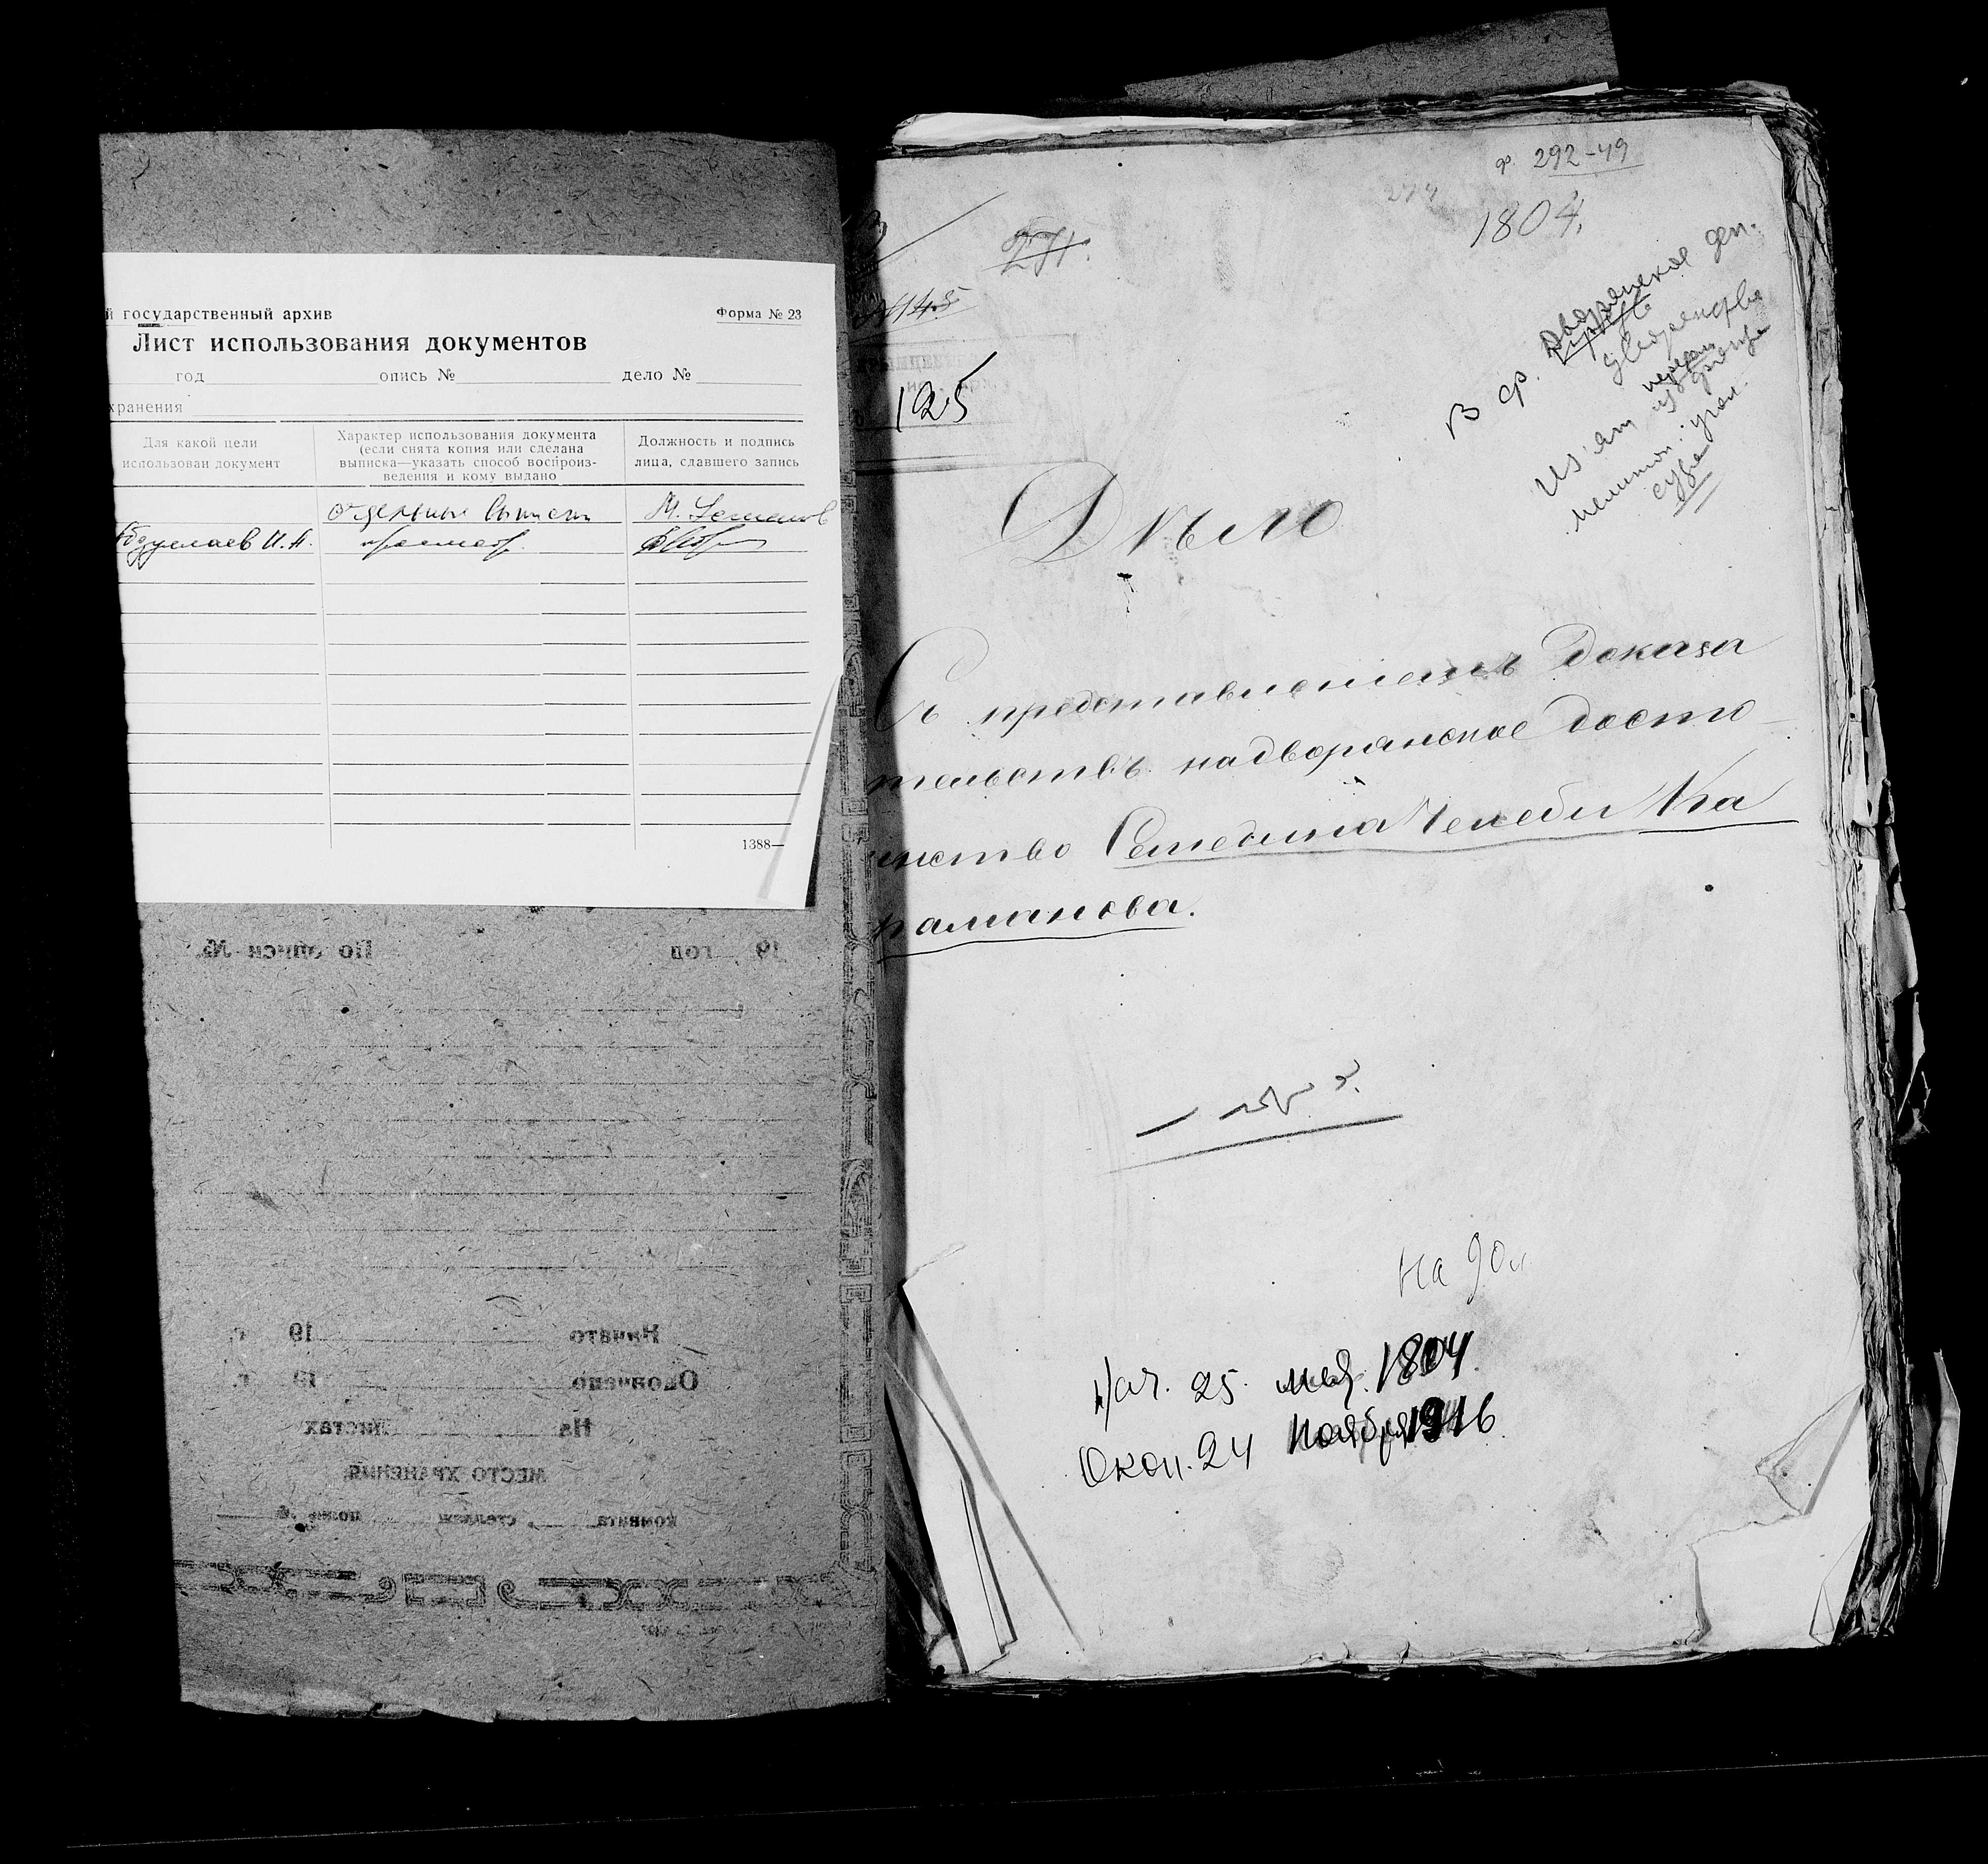 й государственный архив
Форма № 23
Лист использования документов
год опись № дело №
хранения
Для какой цели
использован документ
Характер использования документа
(если снята копия или сделана
выписка—указать способ воспроиз-
ведения и кому выдано
Должность и подпись
лица, сдавшего запись
отдельные
М.
И. А. просмотр.
1388—
19 год По описи №
Начато 19 г.
Окончено 19 г.
На листах
МЕСТО ХРАНЕНИЯ
комната стеллаж полка №
ф. 292-49
277
1804.
271.
145
125
В ф. Дворянское деп.
дворянства
из фонда
угол.
суда
Дѣло
Съ представленіемъ доказа
тельствъ на дворянское досто-
инство Сеттедина Челеби Ка
раманова.
На 90 л
Нач. 25. мая. 1804.
Окон. 24 Ноября 1916.